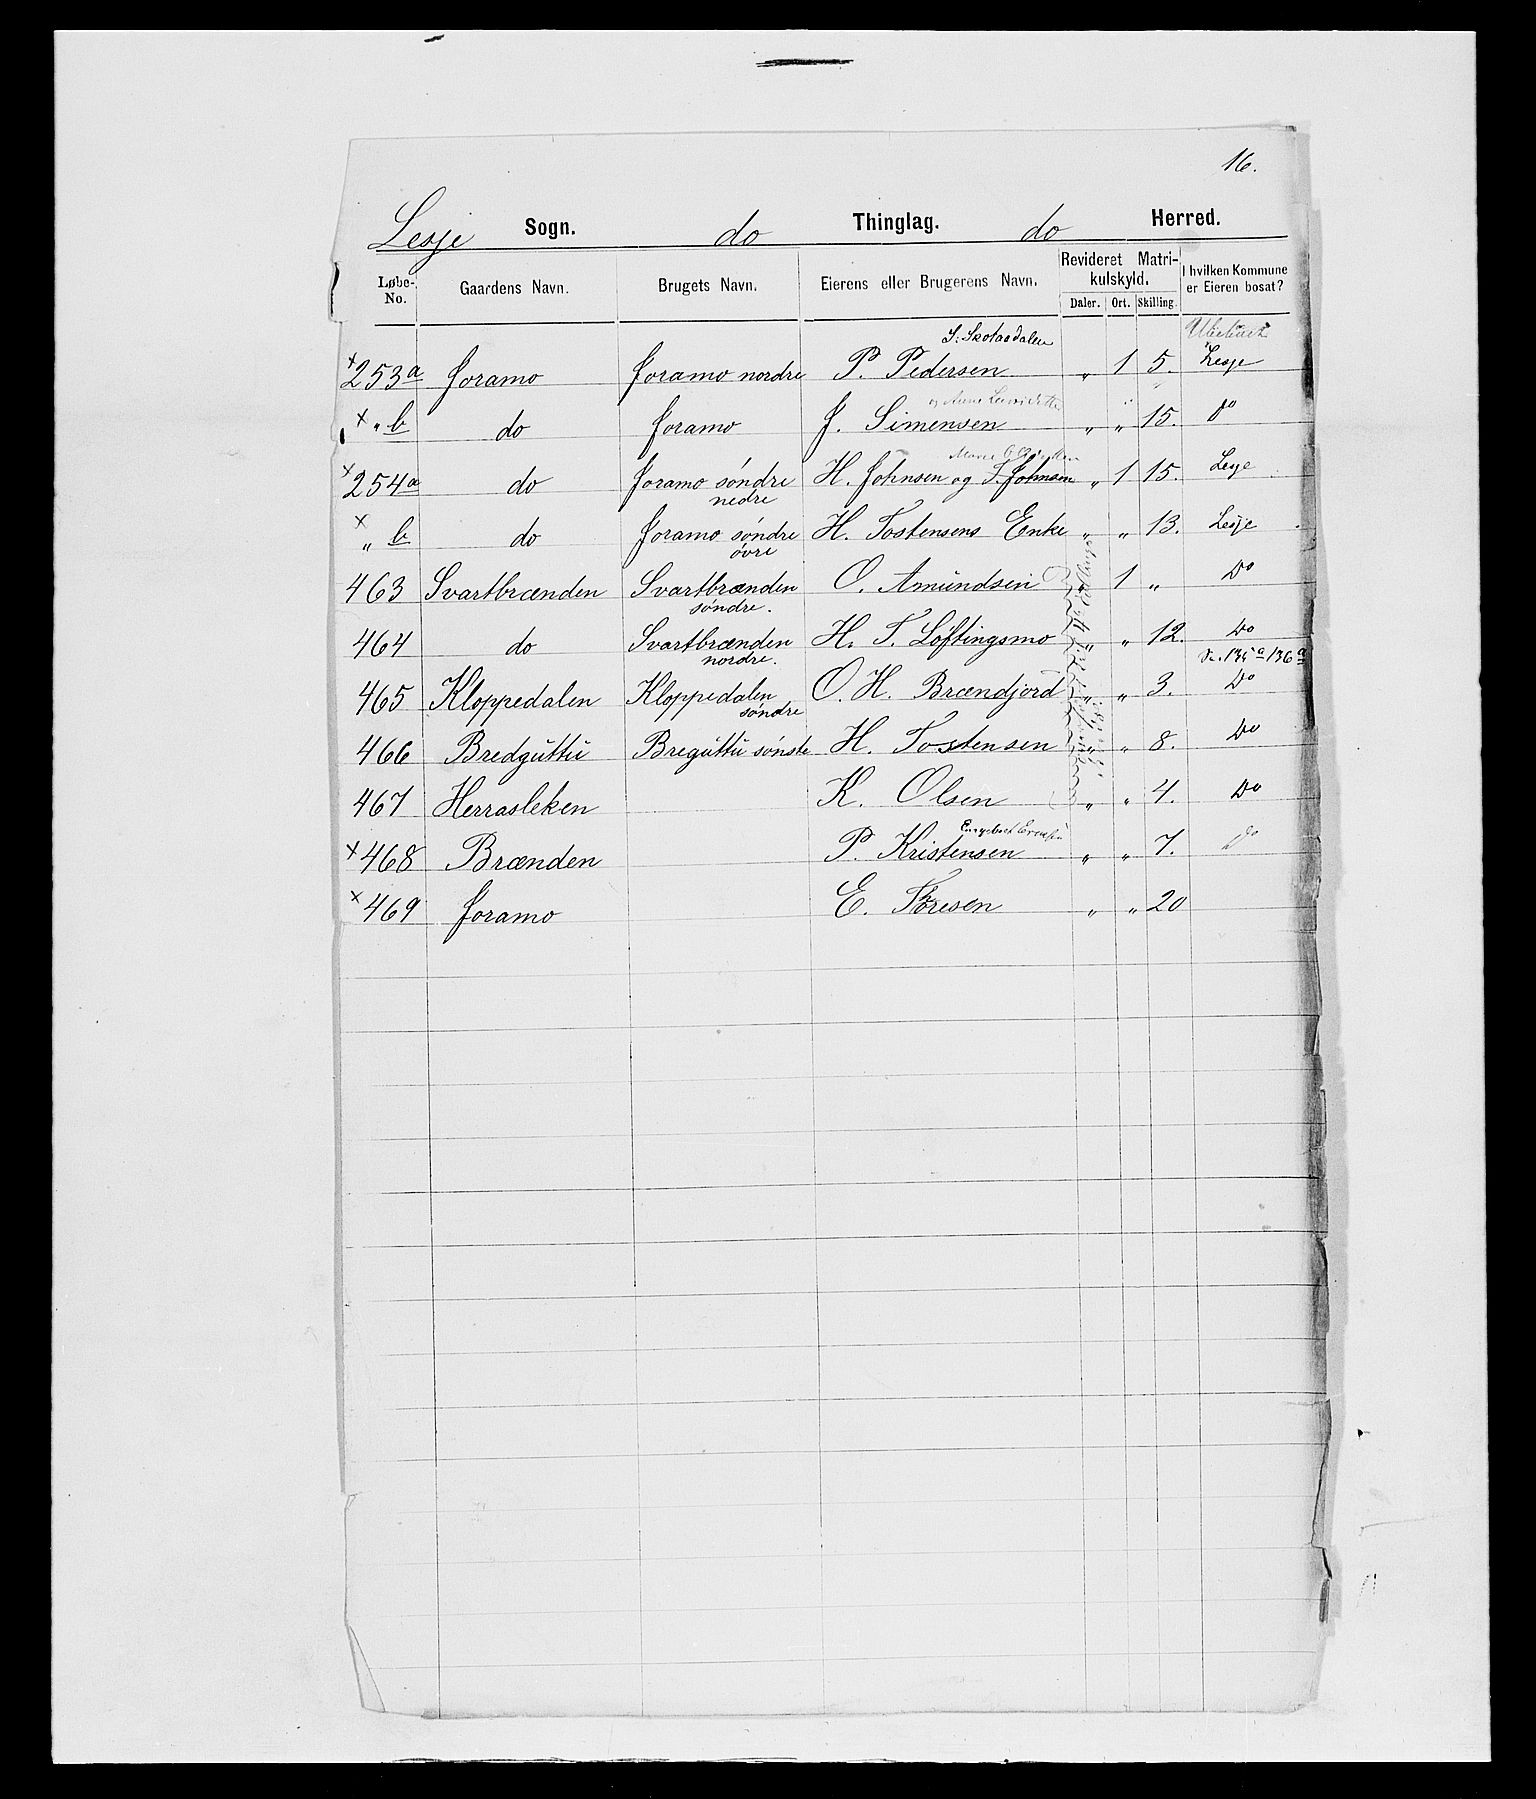 16.
Lesje Sogn. do Thinglag. do Herred.
Løbe-No. Gaardens Navn. Brugets Navn. Eierens eller Brugerens Navn. Revideret Matrikulskyld. Daler. Ort. Skilling. I hvilken Kommune er Eieren bosat?
S: Skotaadalen
×253a Joramo Joramo nordre P. Pedersen „ 1 5. Lesje
× „ b do Joramo J. Simensen „ „ 15. Do
×254a do Joramo søndre nedre H. Johnsen og S. Johnsen „ 1 15. Lesje
× „ b do Joramo søndre øvre H. Tostensens Enke „ „ 13. Lesje
463 Svartbrænden Svartbrænden søndre. O. Amundsen 1 „ Do
464 do Svartbrænden nordre. H. T. Løftingsmo „ „ 12. Do
135a 136a
465 Kloppedalen Kloppedalen søndre O. H. Brændjord „ „ 3. Do
466 Bredguttu Breguttu sønste H. Tostensen „ „ 8. Do
467 Herrasleken K. Olsen „ „ 4. Do
×468 Brænden P. Kristensen „ „ 7. Do
×469 Joramo E. Thoresen „ „ 20